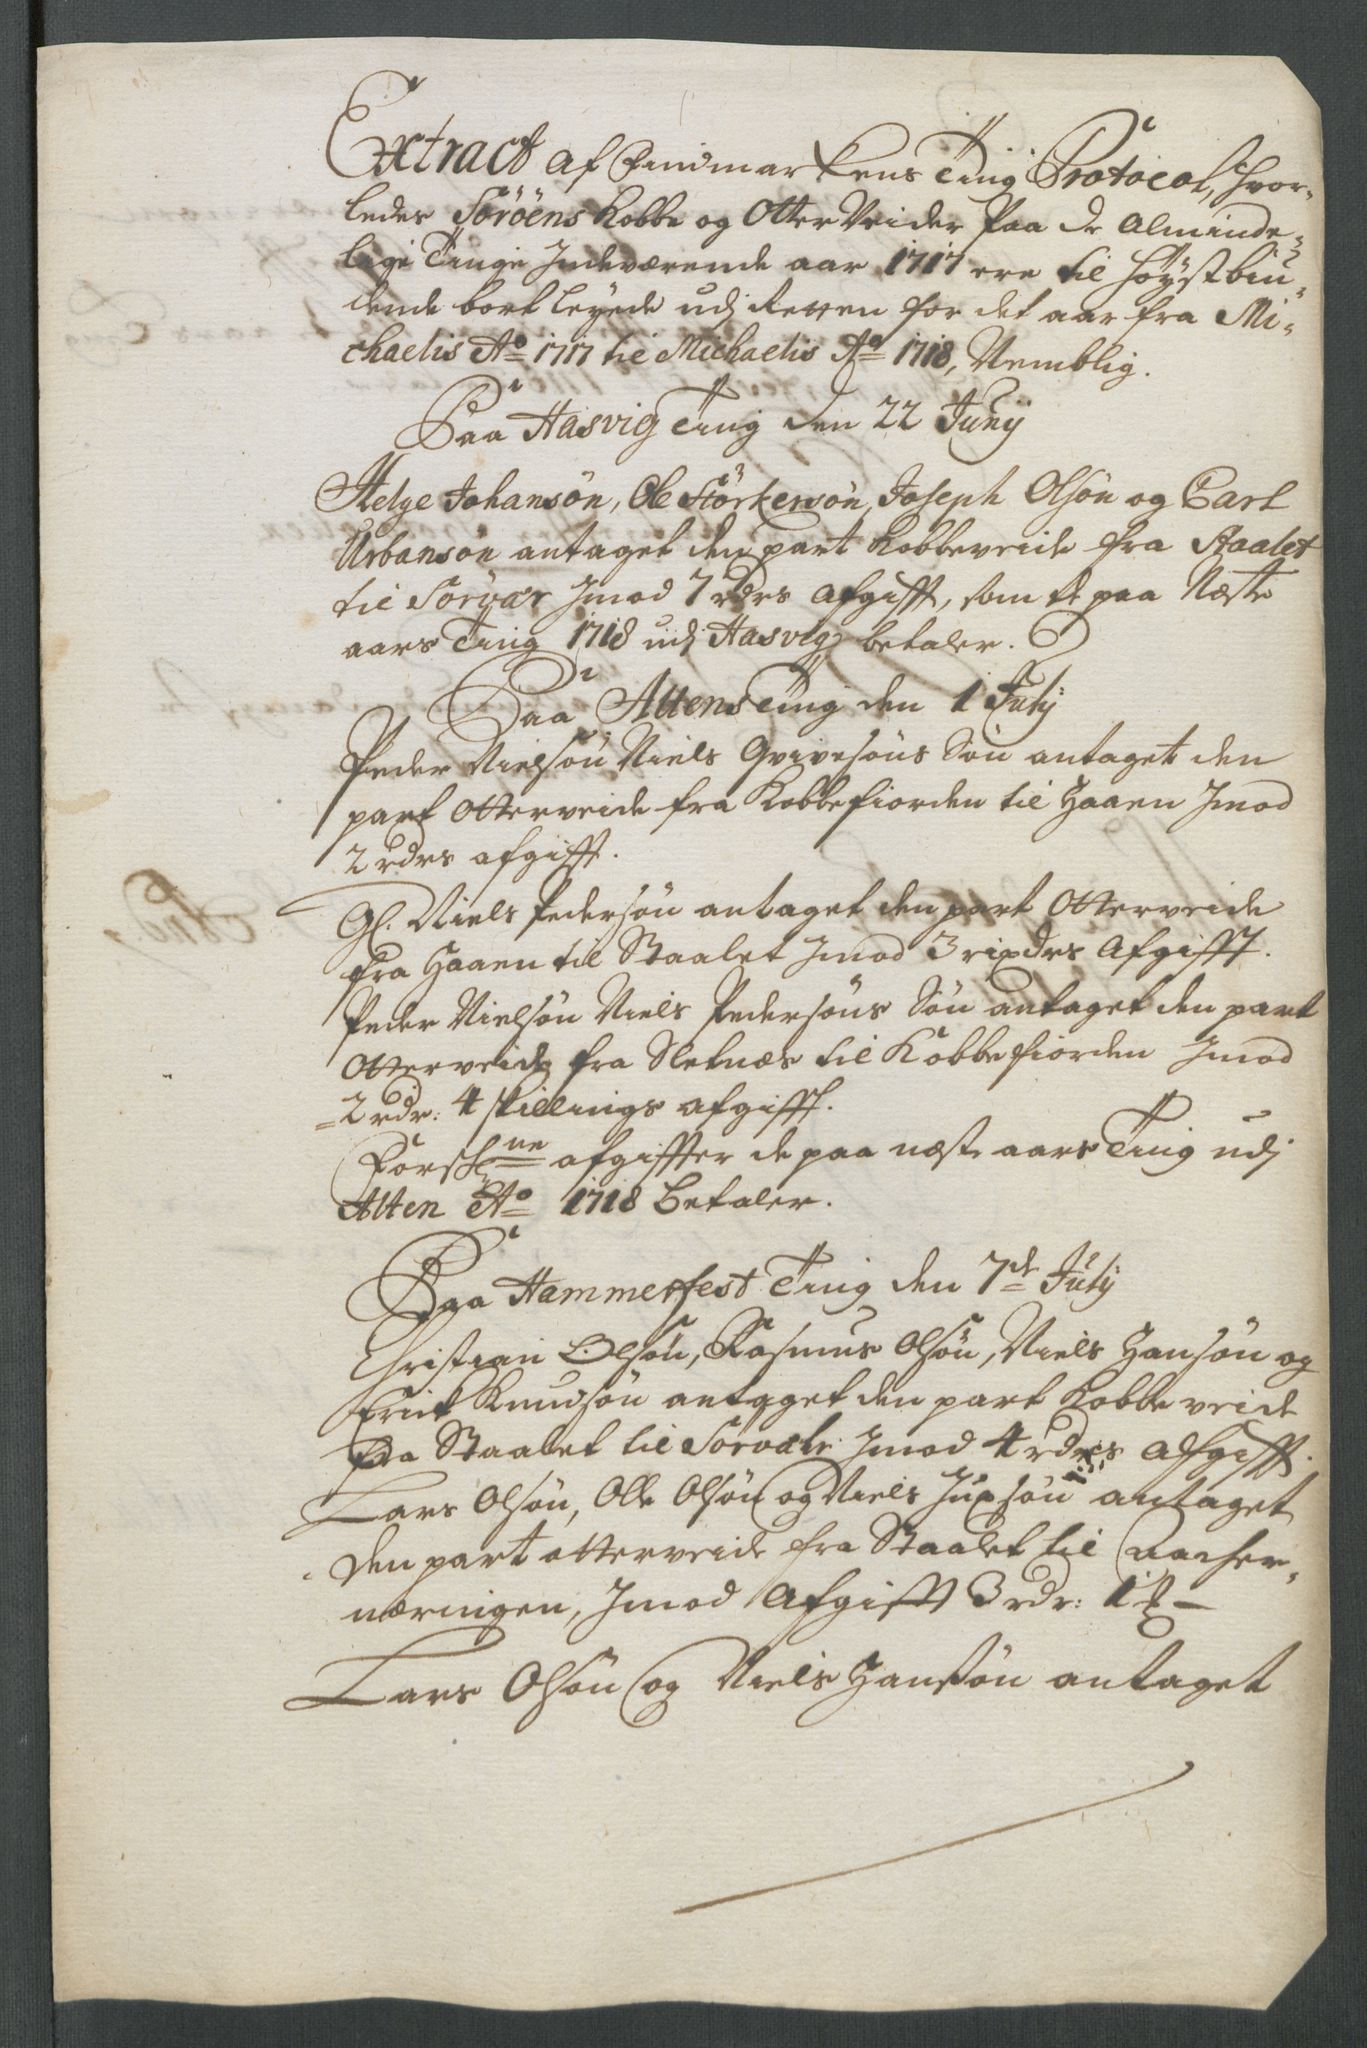 Extract af Findmarkens Ting Protocol, hvor-
ledes Soröens Kobbe og Otter Veider Paa de Alminde-
lige Tinge Indeværende aar 1717 ere til Höystbiu-
dende bort leyede udj Retten for det aar fra Mi-
chaelis Ao 1717 til Michaelis Ao 1718, Nemblig.
Paa Hasvig Ting den 22 Junij
Helge Johansön, Ole Störkersön, Joseph Olsön og Carl
Urbansön antaget den part Kobbeveide fra Staalet
til Sorvær Jmod 7 rdrs Afgifft, som de paa Næste
aars Ting 1718 udj Hasvig betaler.
Paa Altens Ting den 1 Julij
Peder Nielsön Niels Sön antaget den
part Otterveide fra Kobbefiorden til Haaen Jmod
2 rdrs afgifft.
Gl. Niels Pedersön antaget den part Otterveide
fra Haaen til Staalet Jmod 3 rixdrs Afgifft.
Peder Nielsön Niels Pedersöns Sön antaget den part
Otterveide fra Sletnæs til Kobbefiorden Jmod
2 rdr: 4 skillings afgifft.
Forschne afgiffter de paa næste aars Ting udj
Alten Ao 1718 Betaler.
Paa Hammerfest Ting den 7de Julij
Christian Olsön, Rasmus Olsön, Niels Hansön og
Erick Knudsön antaget den part Kobbe veide
fra Staalet til Sorvær Jmod 4 rdrs Afgifft.
Lars Olsön, Olle Olsön og Niels antaget
den part otterveide fra Staalet til
næringen, Jmod Afgifft 3 rdr: 1
Lars Olsön og Niels Hansön antaget